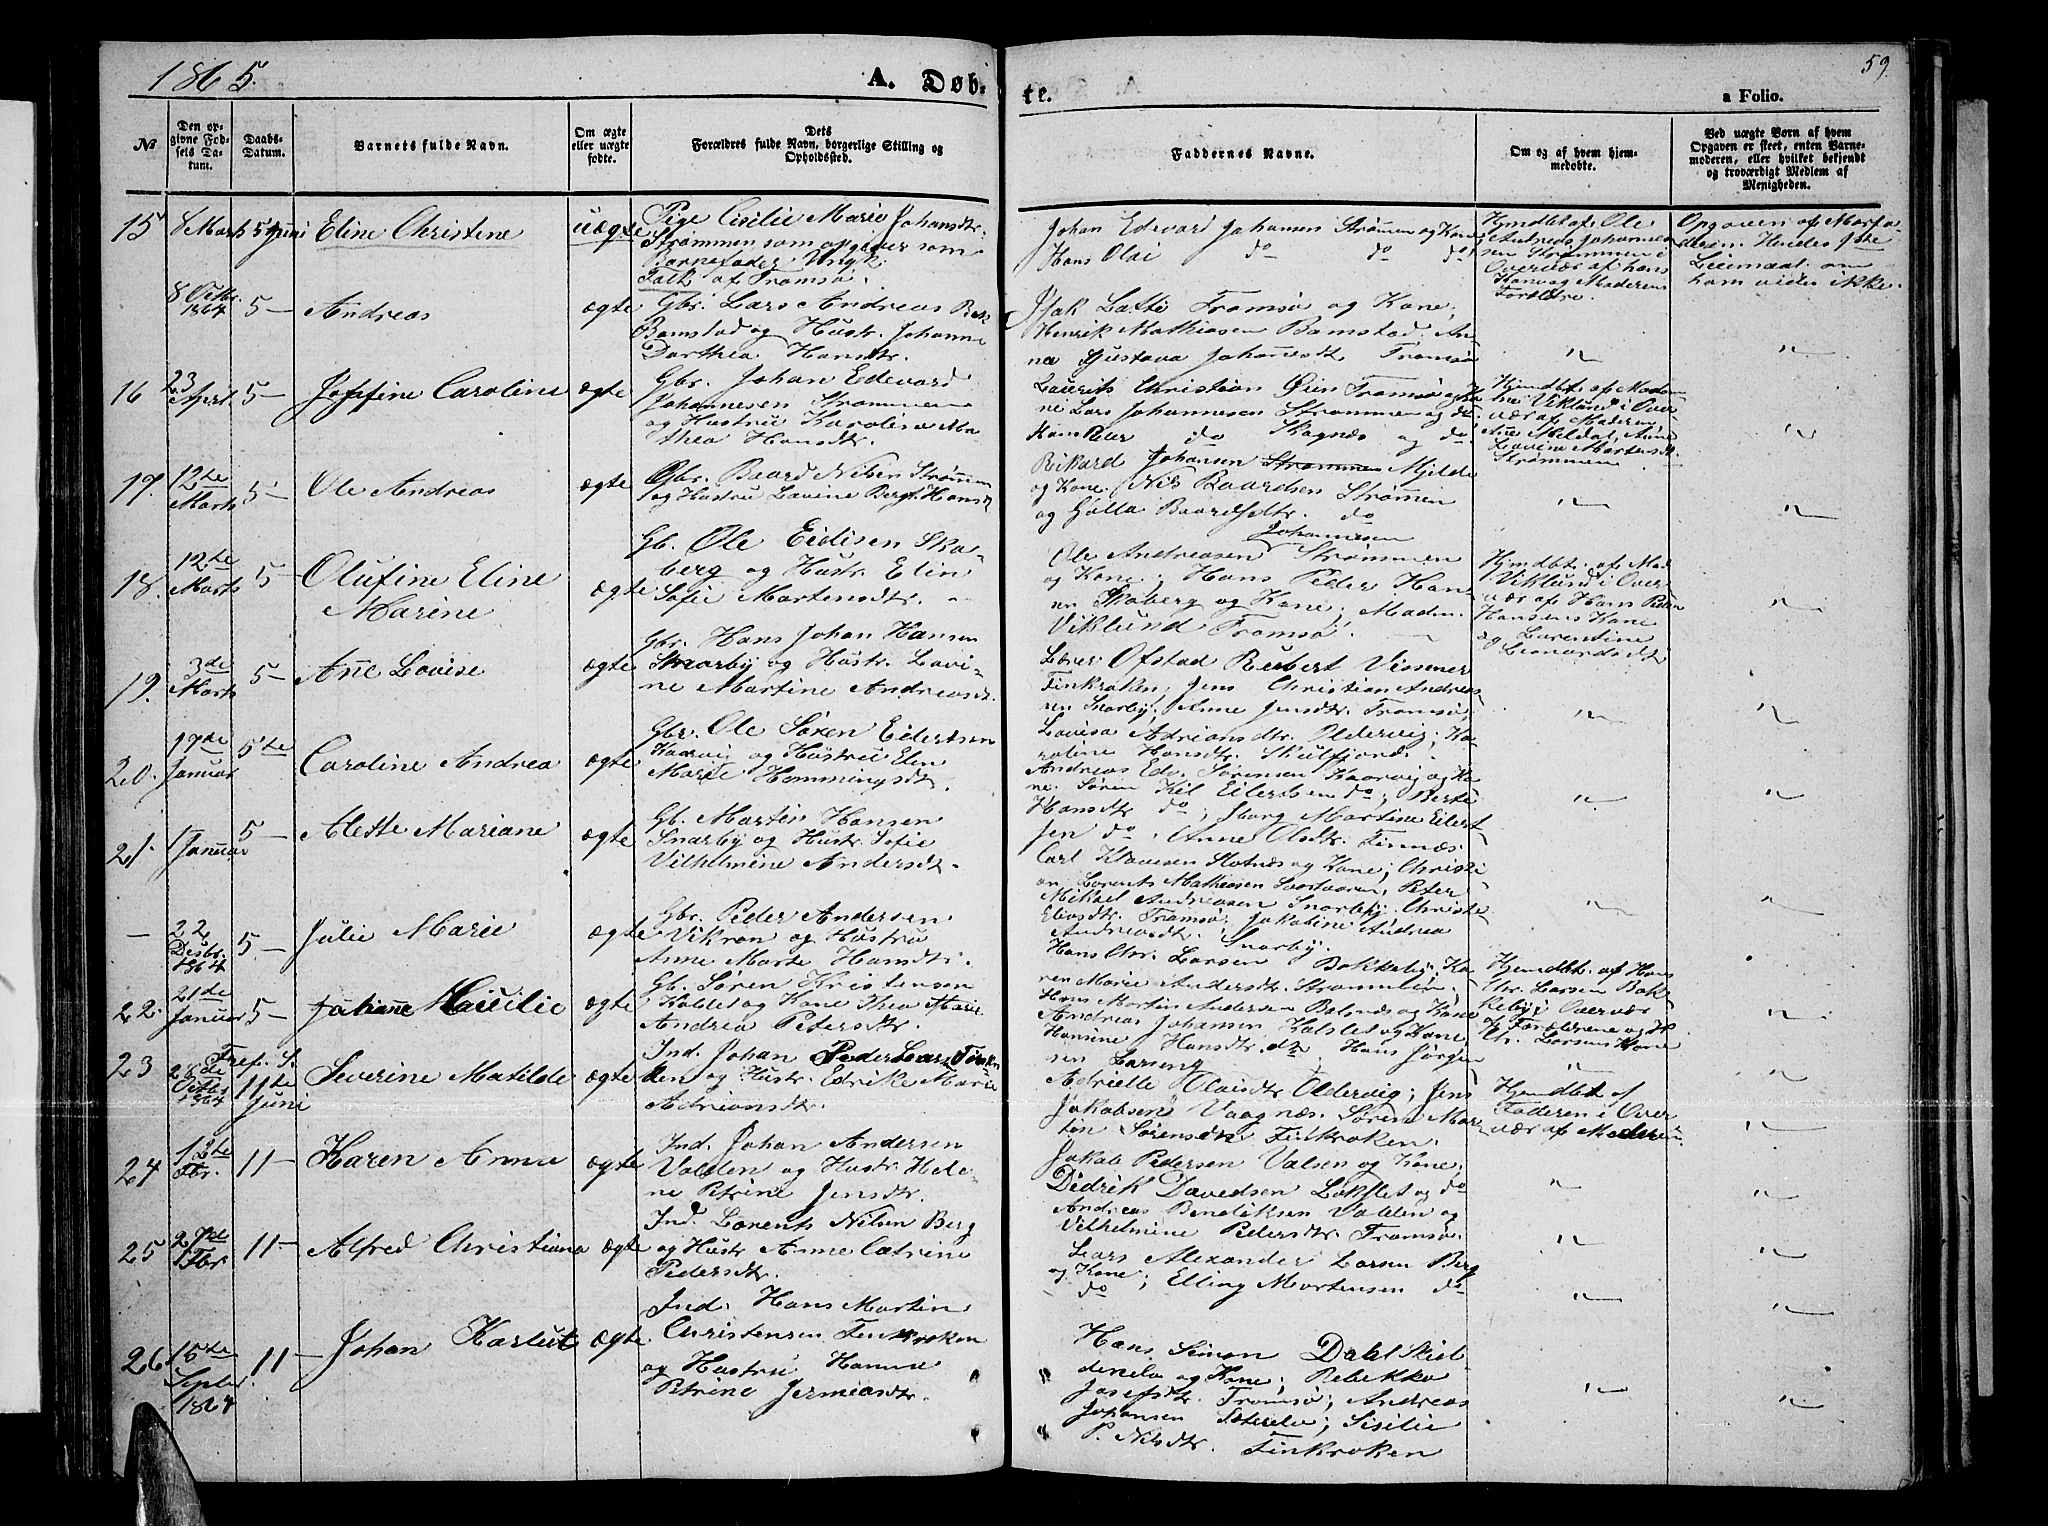 1865.
A. Døb-
te.
59
a Folio.
№
Den op-
givne Fød-
sels Da-
tum.
Daabs-
Datum.
Barnets fulde Navn.
Om ægte
eller uægte
fødte.
Dets
Forældres fulde Navn, borgerlige Stilling og
Opholdssted.
Faddernes Navne.
Om og af hvem hjem-
medøbte.
Ved uægte Born af hvem
Opgaven er skeet, enten Barne-
moderen, eller hvilket bekjendt
og troværdigt Medlem af
Menigheden.
15
8 Marts
5 Juni
Eline Christine
uægte
Pige Cisilie Marie Johansdtr.
Strømmen som opgaver som
Barnefader Ungk.
Falk af Tromsø.
Johan Edevard Johansen Strømen og Kone
Hans Olai do do do
Hjmdbt af Ole
Andreas Johannes-
sen Strømmen i
Overvær af hans
Kone og Moderens
Forældre.
Opgaven af Morfa-
deren. Hendes 1ste
Leiermaal om
ham vides ikke.
8 Octbr.
1864
5
Andreas
ægte
Gbr. Lars Andreas
Ramstad og Hustr. Johanne
Dorthea Hansdtr.
Isak Latti Tromsø og Kone,
Henrik Mathiasen Ramstad An-
na Gustava Johannesdt. Tromsø
16
23
April.
5
Josefine Caroline
ægte
Gbr. Johan Edevard
Johannesen Strømmen
og Hustru Karolina Ma
thea Hansdtr.
Laurits Christian Øien Tromsø og Ko-
ne Lars Johannesen Strømmen og do.
Hans Peter do Skognæs og do
Hjmdbt. af Madm
Viklund i Over
vær af Moderen
Ane Meldal, Anne
Lovine Martensdt
Strømmen
17.
12te
Marts
5
Ole Andreas
ægte
Gbr. Baard Nilsen Strømen
og Hustru Lavine Bergt. Hansdt
Rikard Johansen Strømmen Mjelde
og Kone. Nils Baardsen Strømen
og Golla Baardsdtr. do
18.
12te
Marts
5
Olufine Eline
Marine
ægte
Gb. Ole Eidisen Ska-
berg og Hustr. Elen
Sofie Martensdtr.
Johannesen
Ole Andreasen Strømmen
og Kone; Hans Peder Han-
sen Skaberg og Kone; Madm.
Viklund Tromsø.
Hjmdbt. af Mad
Viklund i Over
vær af Hans Peder
Hansens Kone
og Lorentine
Leonardsdt
19.
3de
Marts
5
Ane Lovise
ægte
Gbr. Hans Johan Hansen
Snarby og Hustr. Lovi-
ne Martine Andreasdt.
Lærer Ofstad Rubert Vissmer
Finkroken; Jens Christian Andreas
sen Snarby, Anne Jensdtr. Tromsø,
Lovisa Adriansdtr. Oldervig; Ka
roline Hansdtr. Skulfjord.
20.
17de
Januar
5te
Caroline Andrea
ægte
Gbr. Ole Sören Eilertsen
Kaarvig og Hustru Elen
Marie Hemmingsdt.
Andreas Edv. Sørensen Kaarvig og Ko-
ne. Sören Kil Eilertsen do; Berte
Hansdtr do; Iborg Martine Eilert
sen do. Anne Olsdtr. Finnæs.
21.
1
Januar
5
Alette Mariane
ægte
Gb. Martin Hansen
Snarby og Hustr. Sofie
Vilhelmine Andersdt.
Carl Klausen Slotnæs og Kone; Christi
an Lorents Mathiasen Svartvaren, Peter
Mikael Andreasen Snarby, Christe
Eliasdtr. Tromsø; Jakobine Andrea
Andreasdt. Snarby.
22
Desbr.
1864
5
Julie Marie
ægte
Gbr. Peder Andersen
Vikran og Hustru
Anne Marte Hansdtr.
Hans Chr. Larsen Bakkeby, Ka
ren Marie Andersdt. Strømmlien;
Hans Martin Andersen Belsnæs og Kone
Hjemdbt. af Hans
Chr. Larsen Bak
keby; Overvær
af Forældrene og H.
Chr. Larsens Kone
22.
21de
Januar
5
Juliane Maurilie
ægte
Gb. Sören Kristensen
Kaldslet og Kone Thea Marie
Andrea Petersdtr.
Andreas Johansen Kalslet og Kone
Hansine Hansdtr. do. Hans Jørgen
sen Larseng
23
28de
Octbr
1864
Tref. S.
11te
Juni
Severine Matilde
ægte
Ind. Johan Peder Lars. Finkro
ken og Hustr. Edrike Marie
Adriansdtr.
Adrielle Olaisdtr Oldervig; Jens
Jakobsen Vaagnæs. Sørine Mar-
tin Sörensdtr Finkroken.
Hjemdbt af
Faderen i Over
vær af Moderen.
24
12te
Fbr.
11
Karen Anna
ægte
Ind. Johan Andersen
Valden og Hustr. Hele-
ne Petrine Jensdtr.
Jakob Pedersen Valsen og Kone;
Didrik Davedsen Lokslet og do
Andreas Bendiksen Valden og
Vilhelmine Pedersdtr. Tromsø.
25
27de
Fbr
11
Alfred Christiana
ægte
Ind. Lorents Nilsen Berg
og Hustr Anne Catrine
Pedersdtr.
Lars Alexander Larsen Berg
og Kone; Elling Mortensen do
do
26
15te
Septbr.
1864
11
Johan Karlut
ægte
Ind. Hans Martin
Christensen Finkroken
og Hustru Hanna
Petrine Jermiasdtr.
Hans Simon Dahl Skiel
denelv og Kone; Rebekka
Josefsdtr. Tromsø; Andreas
Johansen Sæterelv; Sisilie
P. Nilsdtr. Finkroken